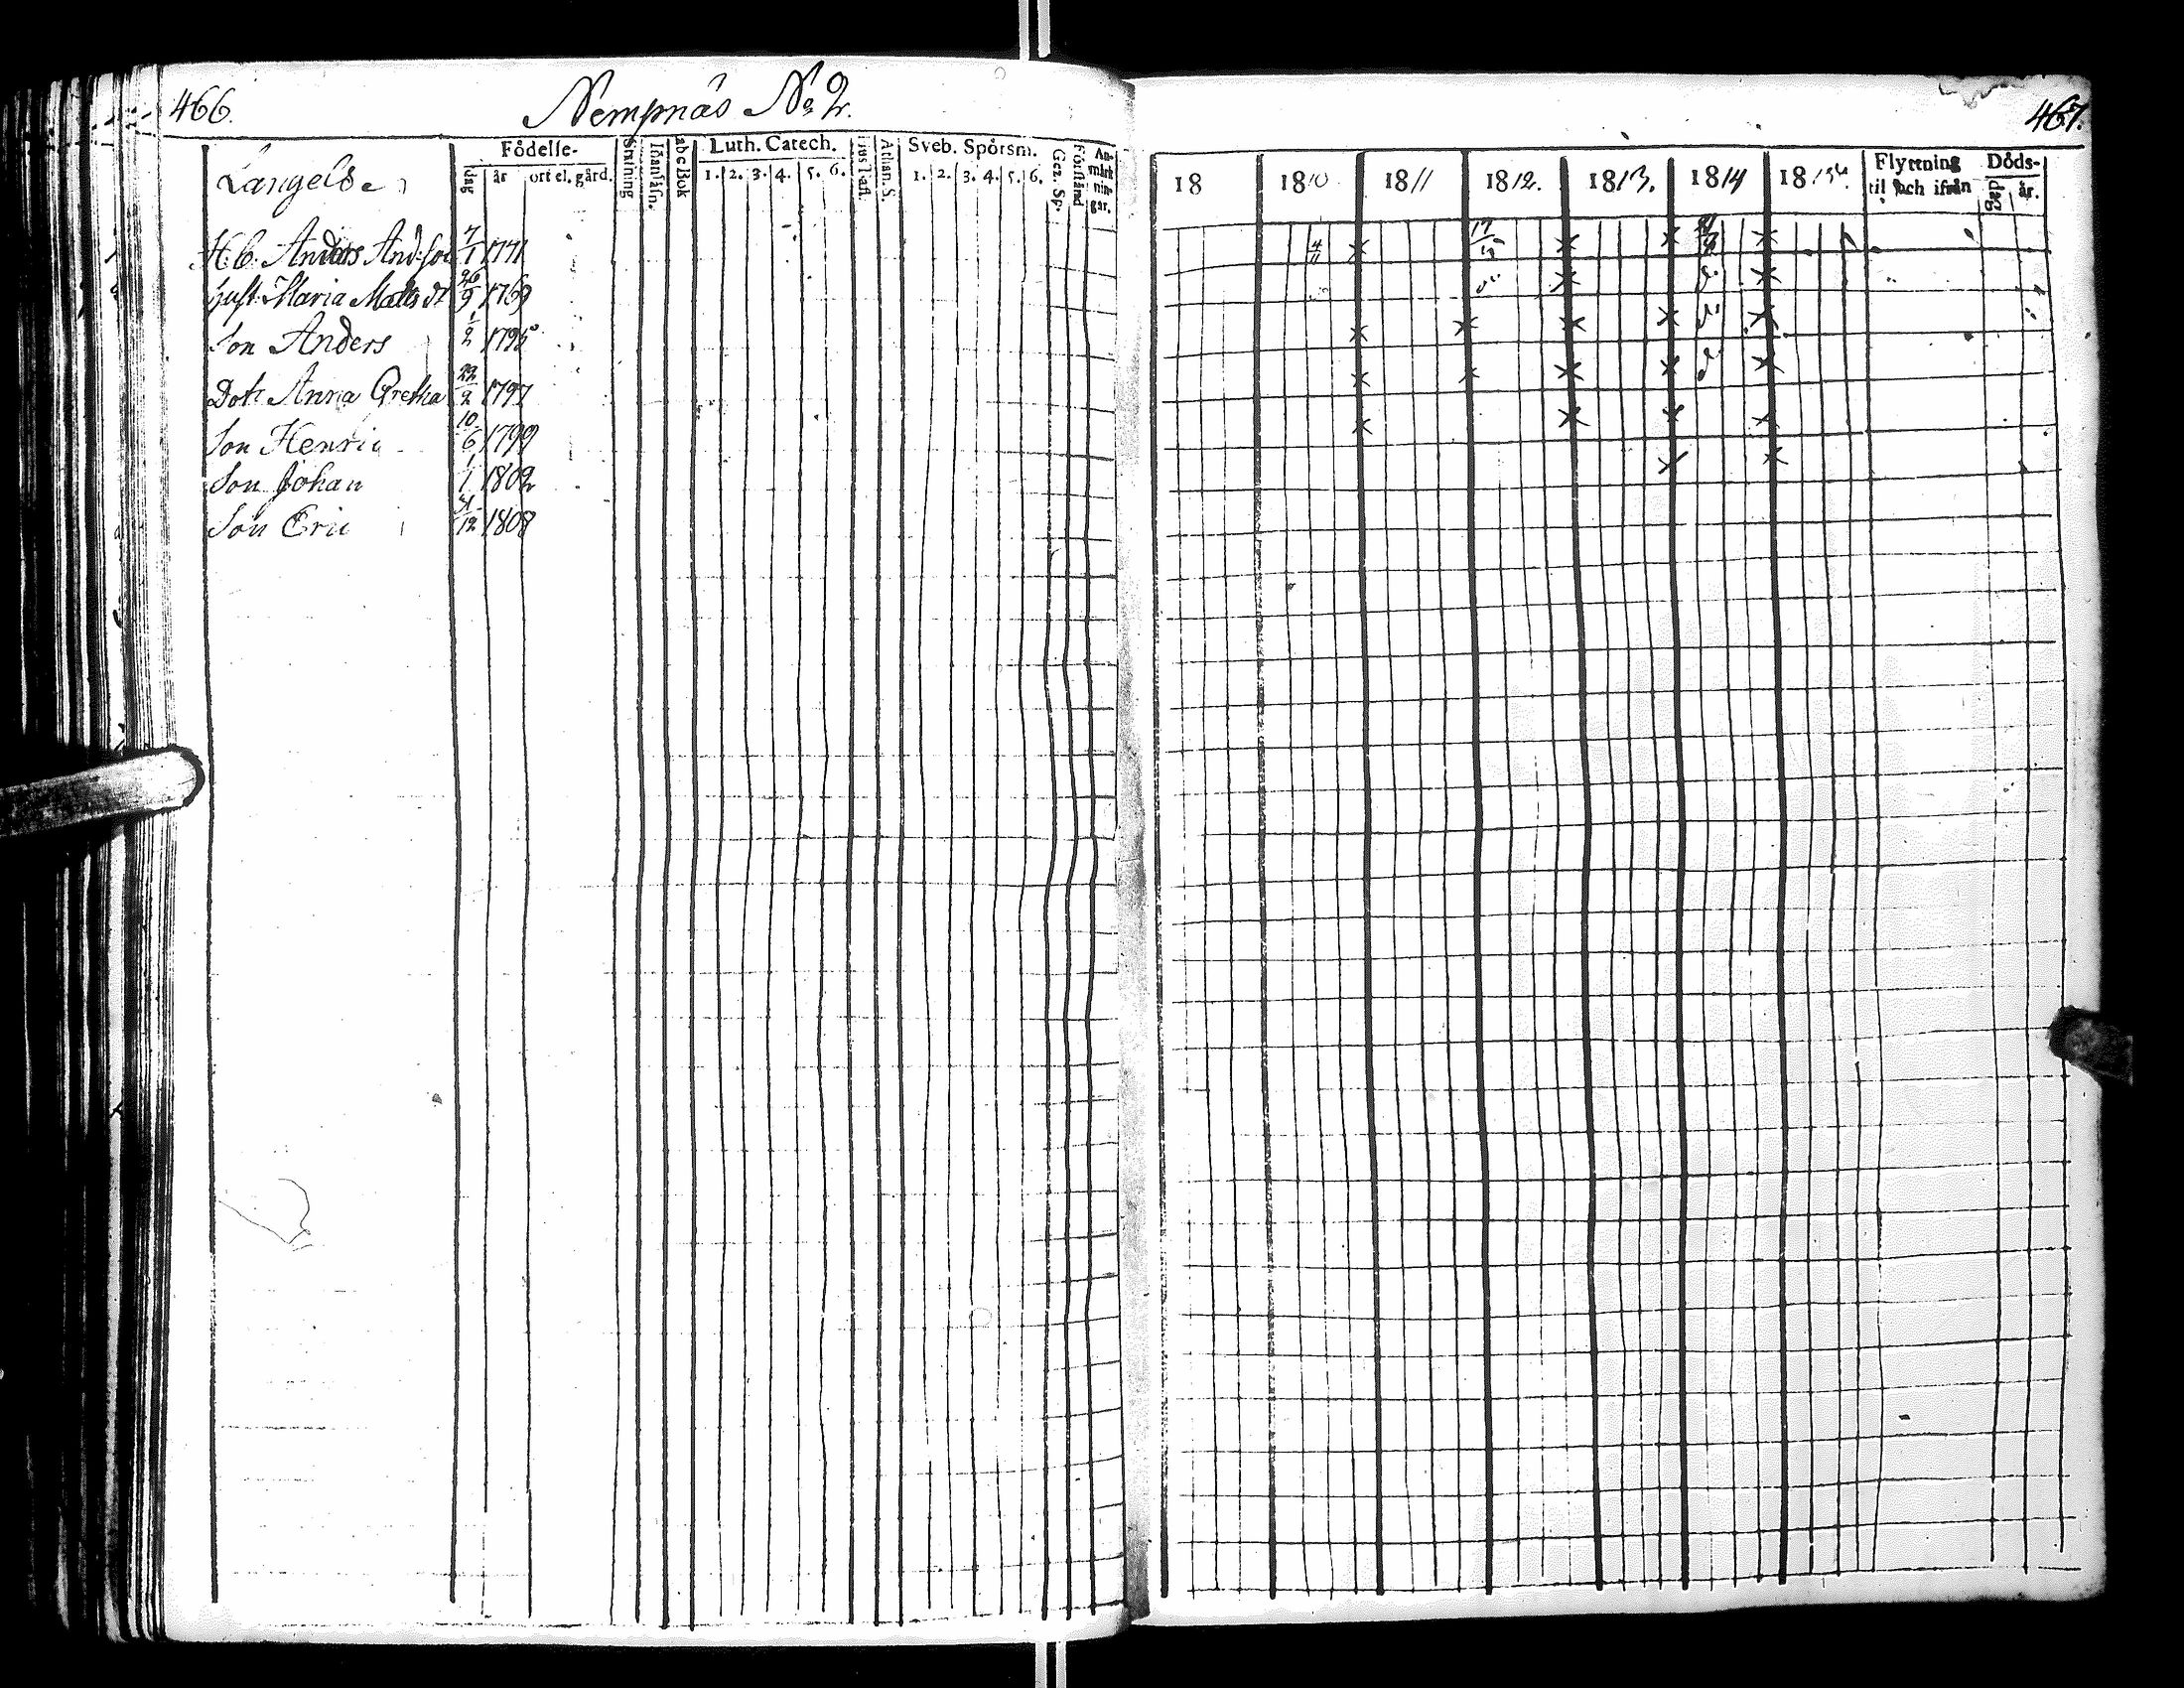 466.
Nempnäs No 2.
Födelse-
dag
år
ort el. gård.
abc Bok
Luth. Catech.
1. 2. 3. 4. 5. 6.
Athan. S.
Sveb. Spörsm.
1. 2. 3. 4. 5. 6.
Gez. Sp.
Förstånd
An-
märk
nin-
gar.
Langels
H.b. Anders And:son 7/1 1771
Hust: Maria Matts dr 26/9 1769
Son Anders 1/2 1795
Dotr Anna Gretha 22/2 1797
Son Henric 10/6 1799
Son Johan 1/1 1802
Son Eric 21/12 1808
467.
18
1810
1811
1812.
1813.
1814
1815
Flyttning
til och ifrån
Döds-
dag
år.
4/11